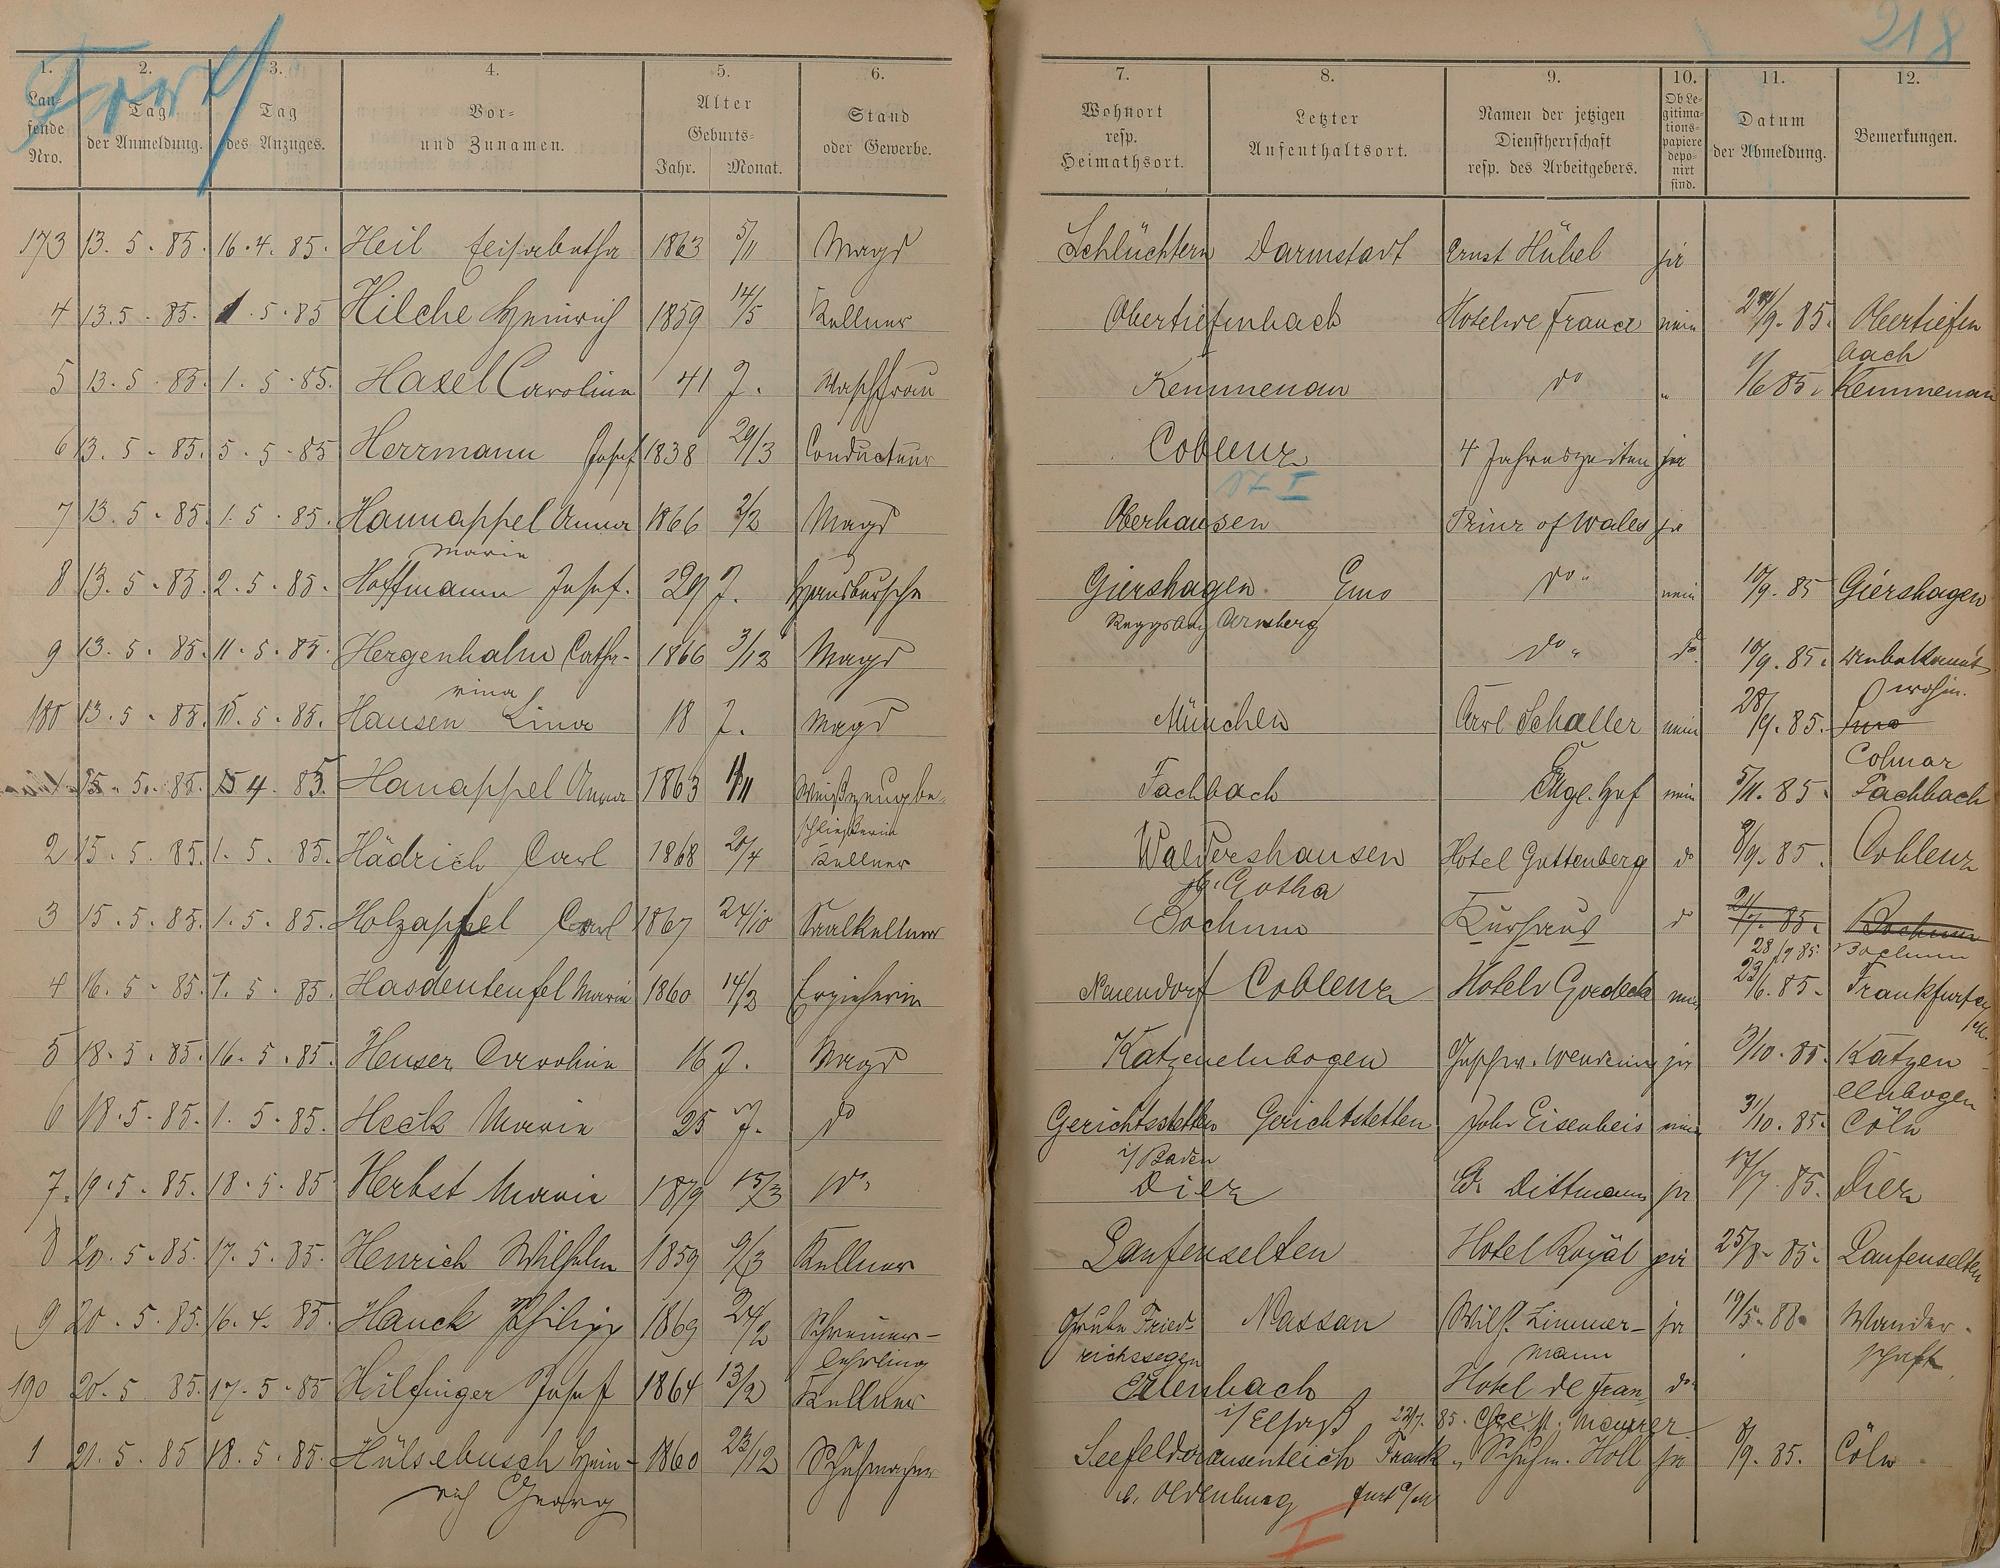 218
1. 2. 3. 4. 5. 6. 7. 8. 9. 10. 11. 12.
Laufende Nro. Tag der Anmeldung. Tag des Anzuges. Vor- und Zunamen. Alter Geburts- Jahr. Monat. Stand oder Gewerbe. Wohnort resp. Heimathsort. Letzter Aufenthaltsort. Namen der jetzigen Dienstherrschaft resp. des Arbeitgebers. Ob Legitimationspapiere deponirt sind. Datum der Abmeldung. Bemerkungen.
173 13. 5. 85. 16. 4. 85. Heil Elisabetha 1863 5/11 Magd Schlüchtern Darmstadt Ernst Hübel ja
4 13. 5. 85. 1. 5. 85 Hilche Heinrich 1859 14/5 Kellner Obertiefenbach Hotel de France nein /9. 85. Obertiefen
bach
5 13. 5. 85. 1. 5. 85. Hasel Caroline 41 J. Waschfrau Kemmenau do " 1/6 85. Kemmenau
6 13. 5. 85. 5. 5. 85 Herrmann Josef 1838 29/3 Conducteur Coblenz 4 Jahreszeiten ja
17 I
7 13. 5. 85. 1. 5. 85. Hannappel Anna 1866 2/2 Magd Oberhausen Prinz of Wales ja
Marie
8 13. 5. 85. 2. 5. 85. Hoffmann Josef. 29 J. Hausbursche Giershagen Ems do " nein 10/9. 85 Giershagen
Arnsberg
9 13. 5. 85. 11. 5. 85. Hergenhahn Catha- 1866 3/12 Magd do " do 10/9. 85. unbekannt
rina wohin.
180 13. 5. 85. 15. 5. 85. Hausen Lina 18 J. Magd München Carl Schaller nein 28/9. 85. Ems
Colmar
15. 5. 85. 15 4. 85. Hanappel Anna 1863 /11 Weißzeugbe- Fachbach Engl. Hof nein 5/11. 85. Fachbach
schließerin
2 15. 5. 85. 1. 5. 85. Hädrich Carl 1868 20/4 Kellner Waldershausen Hotel Guttenberg do 8/9. 85. Coblenz
Gotha
3 15. 5. 85. 1. 5. 85. Holzapfel Carl 1867 24/10 Saalkellner Bochum Kurhaus do 21/7. 85. Bochum
28/9 85. Bochum
4 16. 5. 85. 1. 5. 85. Hasdenteufel Marie 1860 14/2 Erzieherin Neuendorf Coblenz Hotel Goedecke nein 23/6. 85. Frankfurt a/
M.
5 18. 5. 85. 16. 5. 85. Heuser Caroline 16 J. Magd Katzenelnbogen ja 3/10. 85. Katzen
elnbogen
6 18. 5. 85. 1. 5. 85. Heck Marie 25 J. do Gerichtsstetten Gerichtstetten Joh. Eisenbeis nein 3/10. 85. Cöln
i/ Baden
7. 19. 5. 85. 18. 5. 85 Herbst Marie 1879 15/3 do " Diez Ed. Dittmann ja 17/7. 85. Diez
8 20. 5. 85. 17. 5. 85. Henrich Wilhelm 1859 9/3 Kellner Laufenselten Hotel Royal ja 25/8. 85. Laufenselten
9 20. 5. 85. 16. 4. 85. Hauck Philipp 1869 24/2 Schreiner- Grube Fried- Nassau Wilh. Zimmer- ja 19/5. 88. Wander-
lehrling richssegen mann schaft
190 20. 5 85. 17. 5. 85 Hilfinger Josef 1864 13/2 Kellner Erlenbach Hotel de Fran- do
i/ Elsaß 22/7. 85. Maurer
1 21. 5. 85 18. 5. 85. Hülsebusch Hein- 1860 23/12 Schuhmacher Seefelderaussenteich Frank- Schuhm. Holl ja 8/9. 85. Cöln
rich Georg b. Oldenburg furt a/M
I